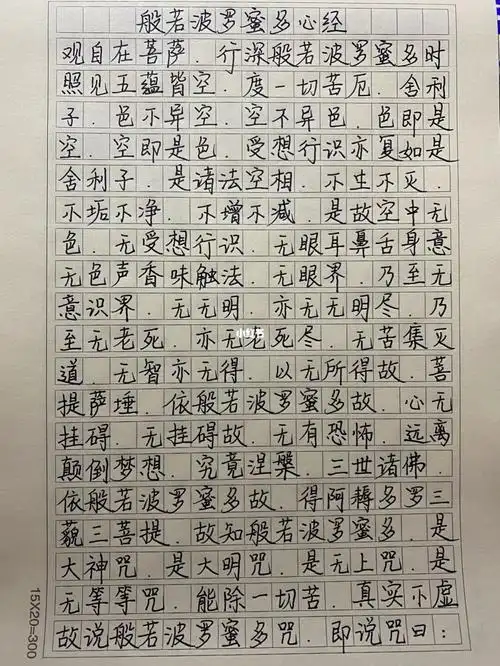 般若波罗蜜多心经
观自在菩萨.行深般若波罗蜜多时
照见五蕴皆空.度一切苦厄.舍利
子.色不异空.空不异色.色即是
空.空即是色.受想行识亦复如是
舍利子.是诸法空相.不生不灭.
不垢不净.不增不减.是故空中无
色.无受想行识.无眼耳鼻舌身意
无色声香味触法.无眼界.乃至无
意识界.无无明.亦无无明尽.乃
至无老死.亦无老死尽.无苦集灭
道.无智亦无得.以无所得故.菩
提萨埵.依般若波罗蜜多故.心无
挂碍.无挂碍故.无有恐怖.远离
颠倒梦想.究竟涅槃.三世诸佛.
依般若波罗蜜多故.得阿耨多罗三
藐三菩提.故知般若波罗蜜多.是
大神咒.是大明咒.是无上咒.是
无等等咒.能除一切苦.真实不虚
故说般若波罗蜜多咒.即说咒曰:
15X20=300
小红书